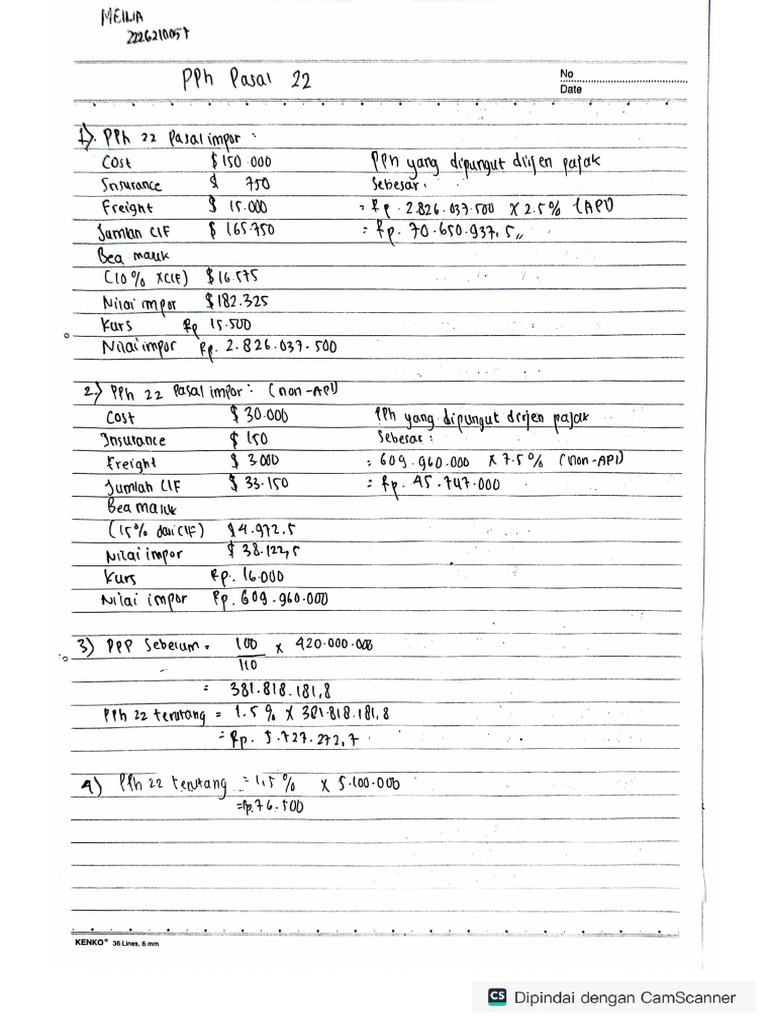 MEILIA
2226210057
PPh Pasal 22
No
Date
1). PPh 22 Pasal impor :
Cost $ 150.000 PPh yang dipungut dirjen pajak
Insurance $ 750 Sebesar :
Freight $ 15.000 = Rp. 2.826.037.500 X 2.5% (API)
Jumlah CIF $ 165.750 = Rp. 70.650.937,5,,
Bea masuk
(10% XCIF) $ 16.575
Nilai impor $ 182.325
Kurs Rp 15.500
Nilai impor Rp. 2.826.037.500
2.) PPh 22 Pasal impor : (non-API)
Cost $ 30.000 PPh yang dipungut dirjen pajak
Insurance $ 150 Sebesar :
Freight $ 3000 = 609.960.000 X 7.5% (non-API)
Jumlah CIF $ 33.150 = Rp. 45.747.000
Bea masuk
(15% dari CIF) $ 4.972,5
Nilai impor $ 38.122,5
Kurs Rp. 16.000
Nilai impor Rp. 609.960.000
3) PPP Sebelum = 100 x 420.000.000
110
= 381.818.181,8
PPh 22 terutang = 1.5% X 381.818.181,8
= Rp. 5.727.272,7
4) PPh 22 terutang = 1,5% X 5.100.000
= Rp. 76.500
KENKO® 36 Lines, 6 mm
CS Dipindai dengan CamScanner